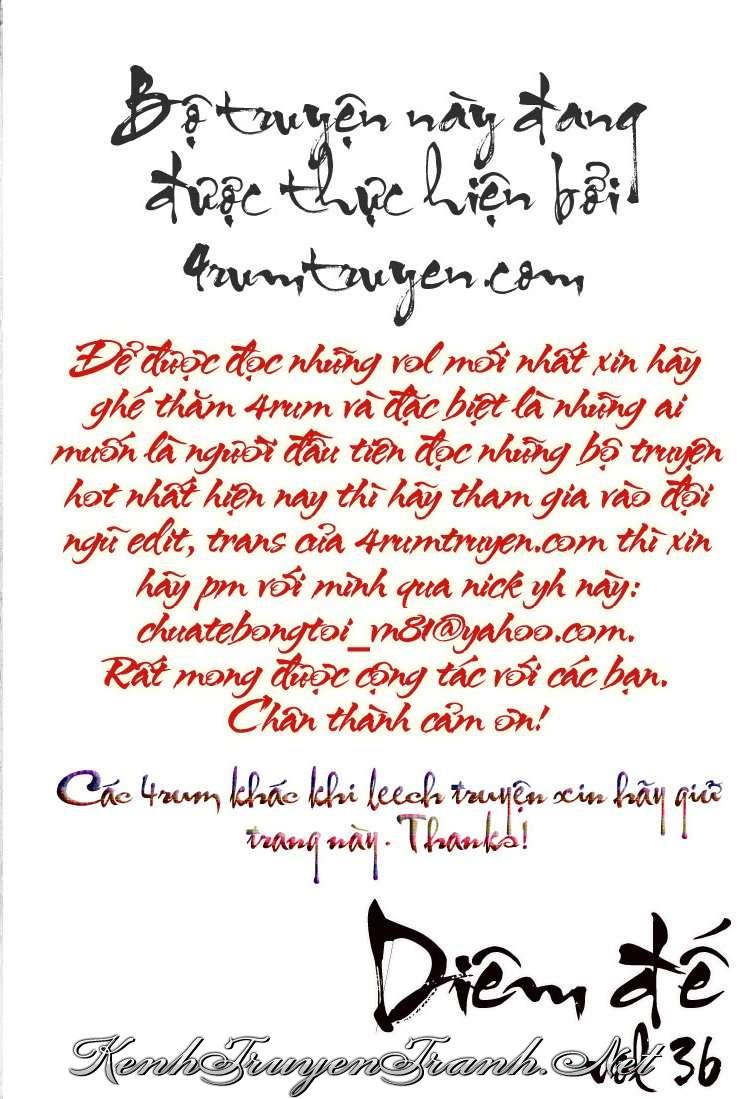 Bộ truyện này đang
được thực hiện bởi
4rumtruyen.com
Để được đọc những vol mới nhất xin hãy
ghé thăm 4rum và đặc biệt là những ai
muốn là người đầu tiên đọc những bộ truyện
hot nhất hiện nay thì hãy tham gia vào đội
ngũ edit, trans của 4rumtruyen.com thì xin
hãy pm với mình qua nick yh này:
chuatebongtoi_vn81@yahoo.com.
Rất mong được cộng tác với các bạn.
Chân thành cảm ơn!
Các 4rum khác khi leech truyện xin hãy giữ
trang này. Thanks!
Diêm đế
vol 36
KenhTruyenTranh.Net